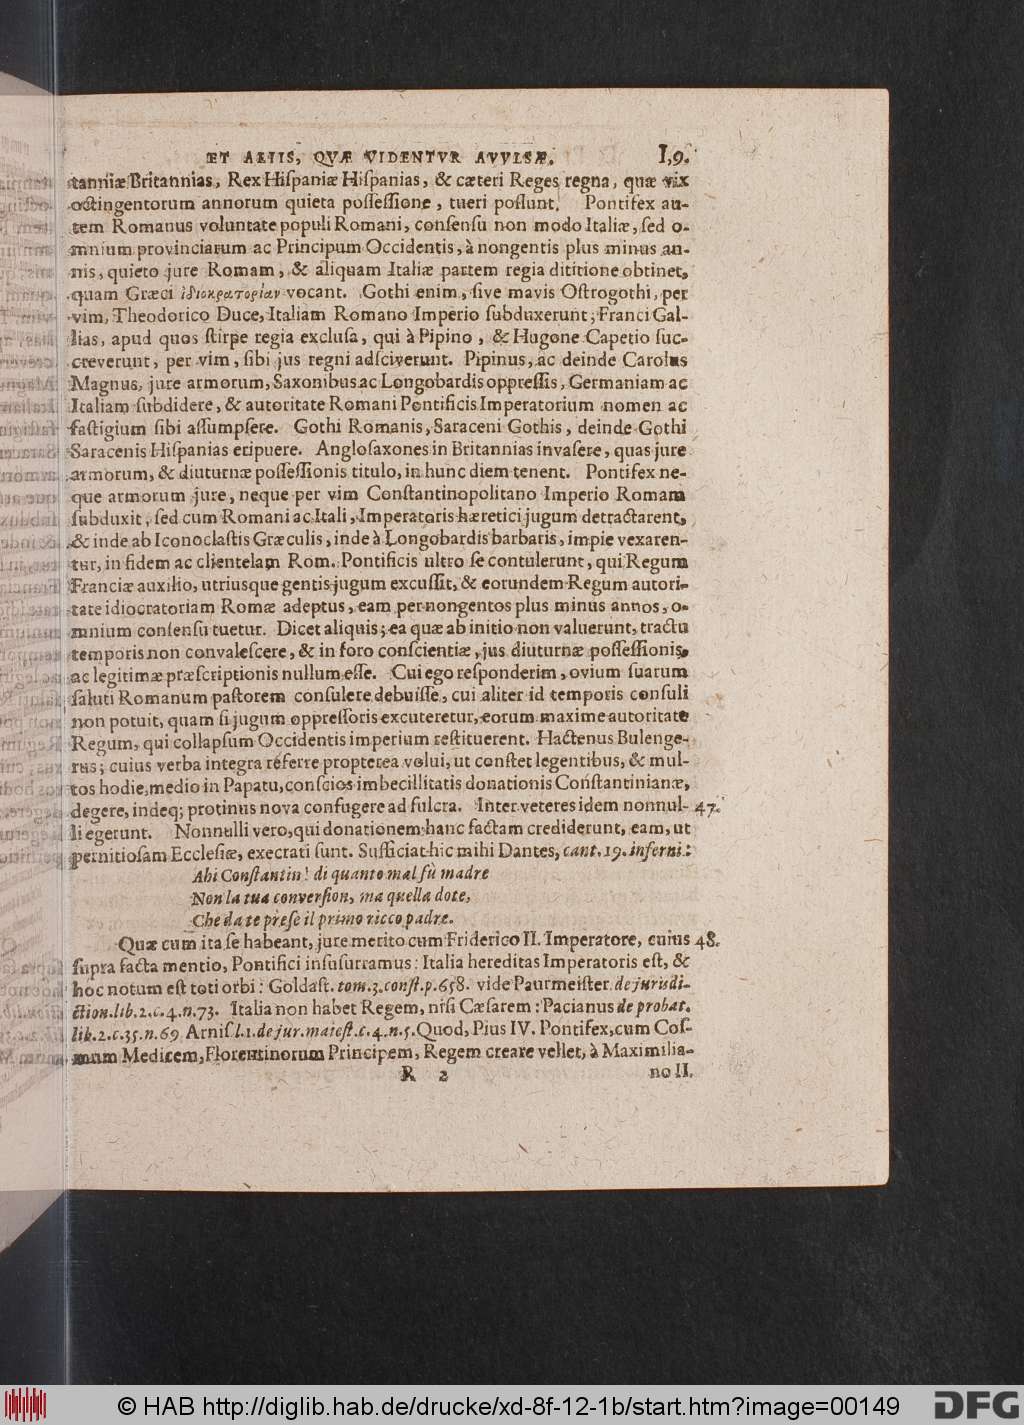 ET ALIIS, QVÆ VIDENTVR AVVLSÆ. 1,9.
tanniæ Britannias, Rex Hiſpaniæ Hiſpanias, & cæteri Reges regna, quæ vix
octingentorum annorum quieta poſſeſſione, tueri poſſunt. Pontifex au-
tem Romanus voluntate populi Romani, conſenſu non modo Italiæ, ſed o-
mnium provinciarum ac Principum Occidentis, à nongentis plus minus an-
nis, quieto jure Romam, & aliquam Italiæ partem regia dititione obtinet,
quam Græci ἰδιοκρατορίαν vocant. Gothi enim, ſive mavis Oſtrogothi, per
vim, Theodorico Duce, Italiam Romano Imperio ſubduxerunt; Franci Gal-
lias, apud quos ſtirpe regia excluſa, qui à Pipino, & Hugone Capetio ſuc-
creverunt, per vim, ſibi jus regni adſciverunt. Pipinus, ac deinde Carolus
Magnus, jure armorum, Saxonibus ac Longobardis oppreſſis, Germaniam ac
Italiam ſubdidere, & autoritate Romani Pontificis Imperatorium nomen ac
faſtigium ſibi aſſumpſere. Gothi Romanis, Saraceni Gothis, deinde Gothi
Saracenis Hiſpanias eripuere. Angloſaxones in Britannias invaſere, quas jure
armorum, & diuturnæ poſſeſſionis titulo, in hunc diem tenent. Pontifex ne-
que armorum jure, neque per vim Conſtantinopolitano Imperio Romam
ſubduxit, ſed cum Romani ac Itali, Imperatoris hæretici jugum detractarent,
& inde ab Iconoclaſtis Græculis, inde à Longobardis barbaris, impie vexaren-
tur, in fidem ac clientelam Rom. Pontificis ultro ſe contulerunt, qui Regum
Franciæ auxilio, utriusque gentis jugum excuſſit, & eorundem Regum autori-
tate idiocratoriam Romæ adeptus, eam per nongentos plus minus annos, o-
mnium conſenſu tuetur. Dicet aliquis; ea quæ ab initio non valuerunt, tractu
temporis non convaleſcere, & in foro conſcientiæ, jus diuturnæ poſſeſſionis,
ac legitimæ præſcriptionis nullum eſſe. Cui ego reſponderim, ovium ſuarum
ſaluti Romanum paſtorem conſulere debuiſſe, cui aliter id temporis conſuli
non potuit, quam ſi jugum oppreſſoris excuteretur, eorum maxime autoritate
Regum, qui collapſum Occidentis imperium reſtituerent. Hactenus Bulenge-
rus; cuius verba integra referre propterea volui, ut conſtet legentibus, & mul-
tos hodie, medio in Papatu, conſcios imbecillitatis donationis Conſtantinianæ,
degere, indeq; protinus nova confugere ad fulcra. Inter veteres idem nonnul- 47.
li egerunt. Nonnulli vero, qui donationem hanc factam crediderunt, eam, ut
pernitioſam Eccleſiæ, execrati ſunt. Sufficiat hic mihi Dantes, cant. 19. inferni.:
Ahi Conſtantin! di quanto mal fù madre
Non la tua converſion, ma quella dote,
Che da te preſe il primo ricco padre.
Quæ cum ita ſe habeant, jure merito cum Friderico II. Imperatore, cuius 48.
ſupra facta mentio, Pontifici inſuſurramus: Italia hereditas Imperatoris eſt, &
hoc notum eſt toti orbi: Goldaſt. tom. 3. conſt. p. 658. vide Paurmeiſter. de jurisdi-
ction. lib. 2. c. 4. n. 73. Italia non habet Regem, niſi Cæſarem: Pacianus de probat.
lib. 2. c. 35. n. 69 Arniſ. l. 1. de jur. maieſt. c. 4. n. 5. Quod, Pius IV. Pontifex, cum Coſ-
mum Medicem, Florentinorum Principem, Regem creare vellet, à Maximilia-
R 2 no II.
© HAB http://diglib.hab.de/drucke/xd-8f-12-1b/start.htm?image=00149 DFG